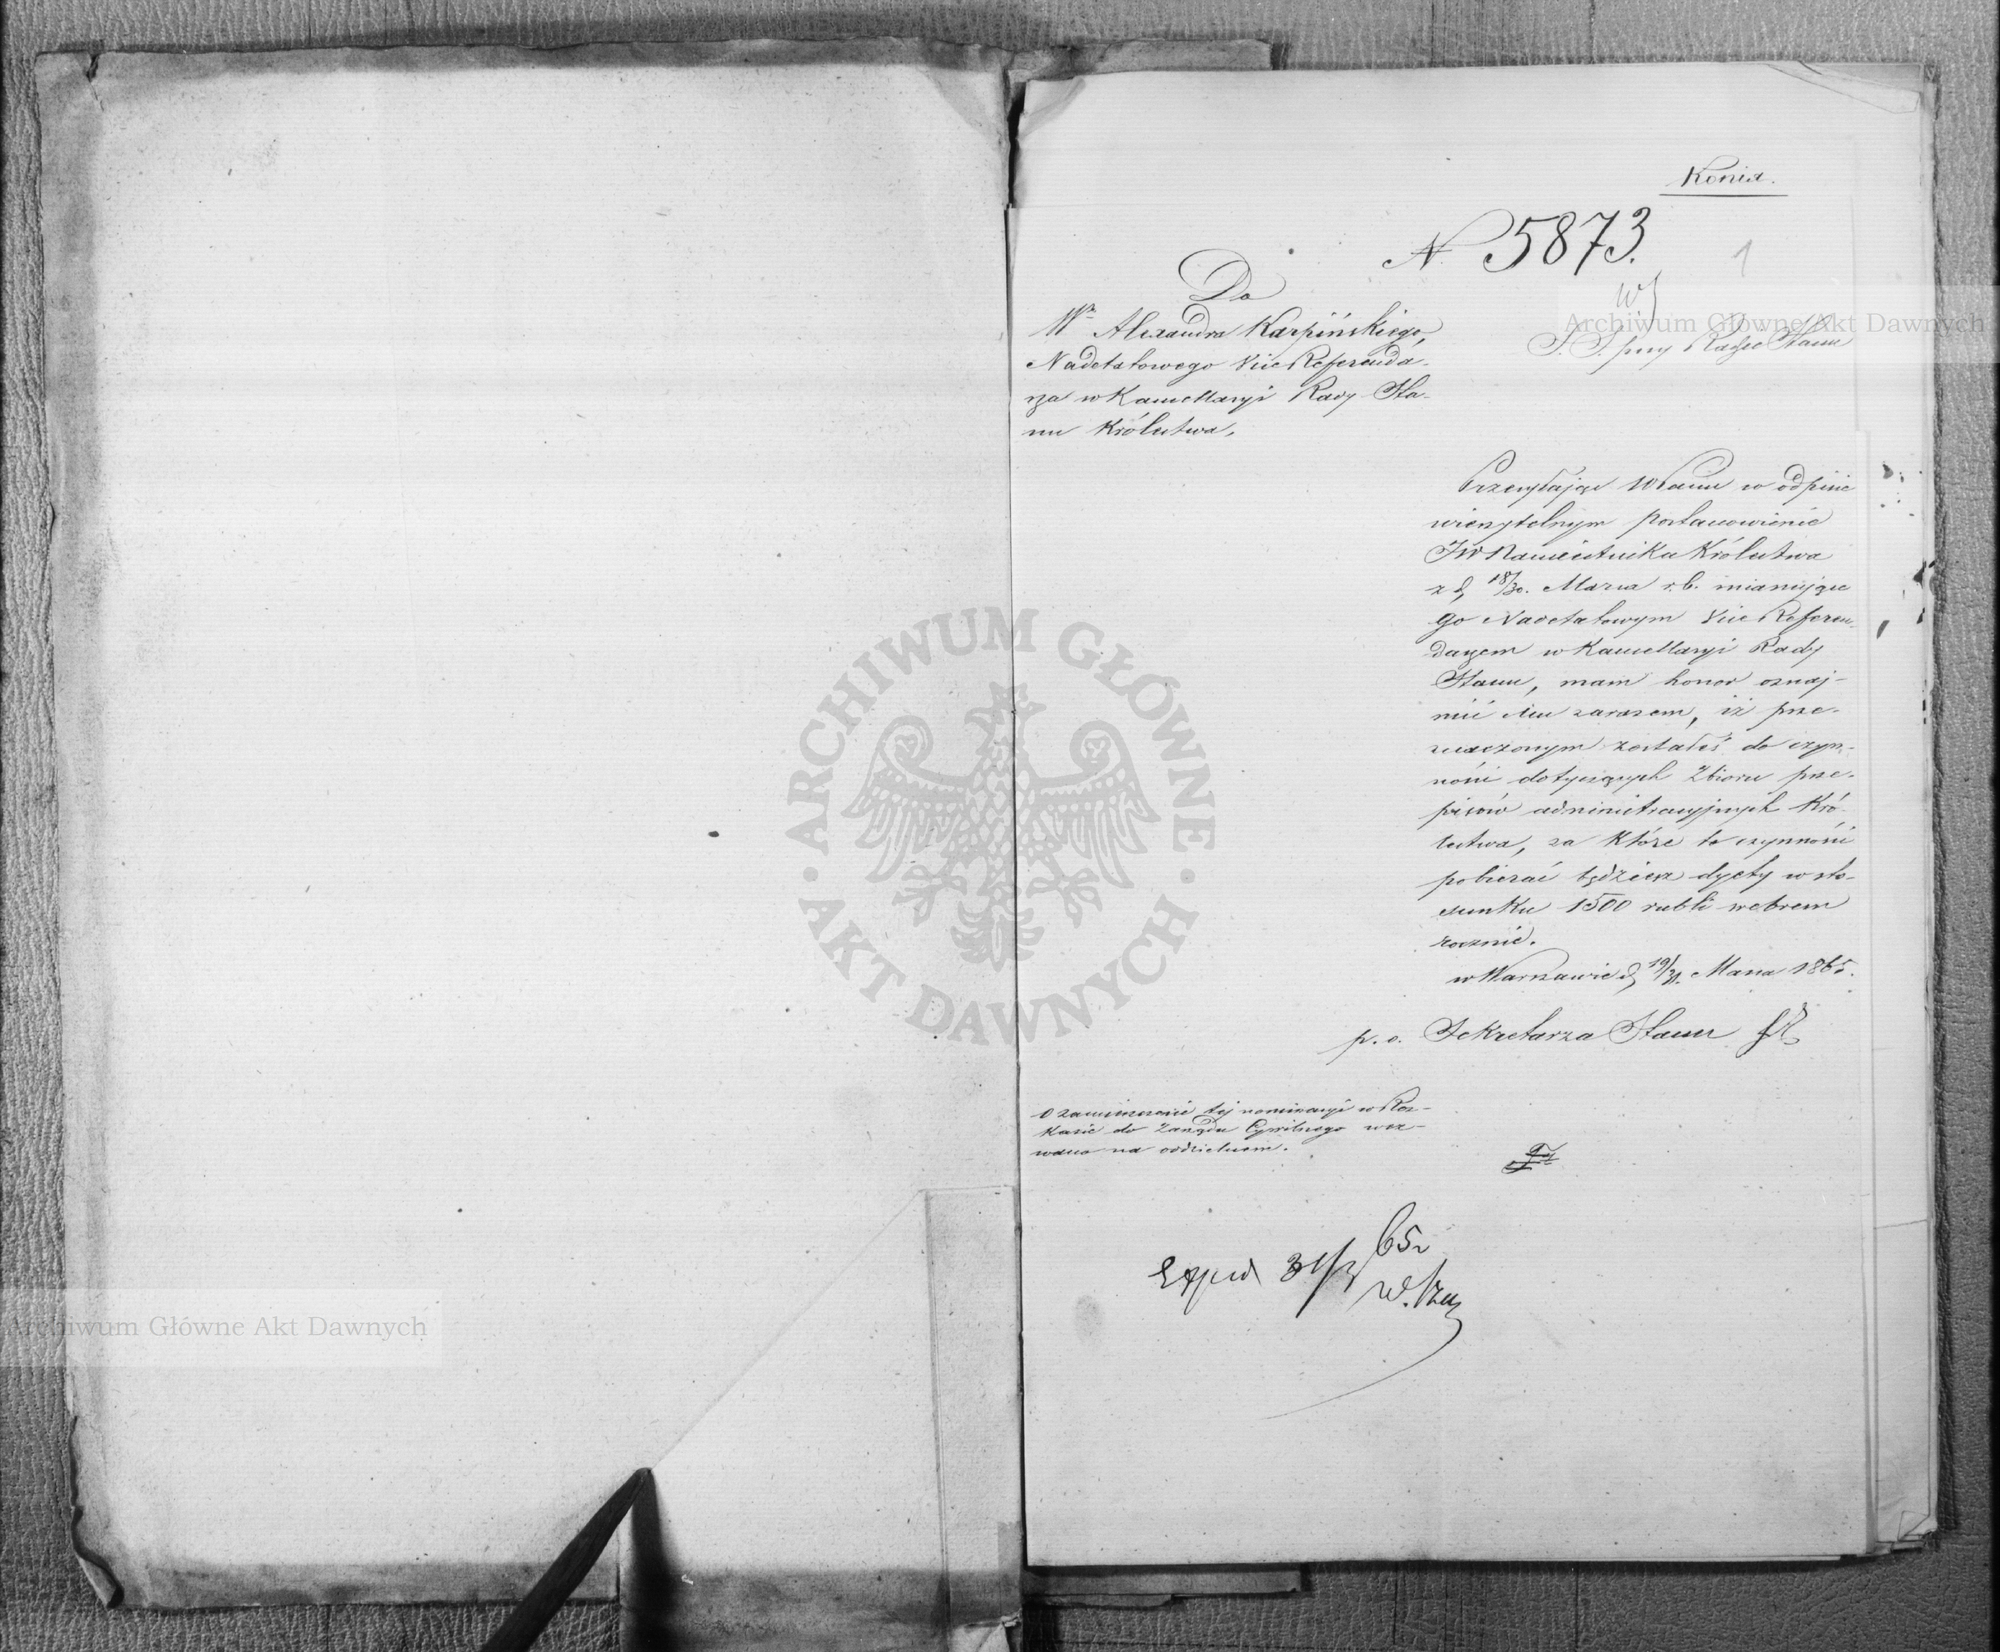 Kopia.
N 5873.
1
Do
Wº Alexandra Karpińskiego,
Nadetatowego Vice Referenda-
rza w Kancellaryi Rady Sta-
nu Królestwa.
S. S. przy Radzie Stanu
Przesyłając WPanu w odpisie
wierzytelnym postanowienie
JW Namiestnika Królestwa
z d. 18/30. Marca r.b. mianujące
go Nadetatowym Vice Referen-
darzem w Kancellaryi Rady
Stanu, mam honor oznaj-
mić Mu zarazem, iż prze-
znaczonym zostałeś do czyn-
ności dotyczących Zbioru prze-
pisów administracyjnych Kró-
lestwa, za które to czynności
pobierać będziesz dyety w sto-
sunku 1500 rubli srebrem
rocznie.
w Warszawie d. 19/31. Marca 1865.
p. o. Sekretarza Stanu
O zamieszczenie tej nominacyi w Roz-
kazie do Zarządu Cywilnego wez-
wano na oddzielnem.
Exped 31/3 65
Archiwum Główne Akt Dawnych
Archiwum Główne Akt Dawnych
ARCHIWUM GŁÓWNE · AKT DAWNYCH ·